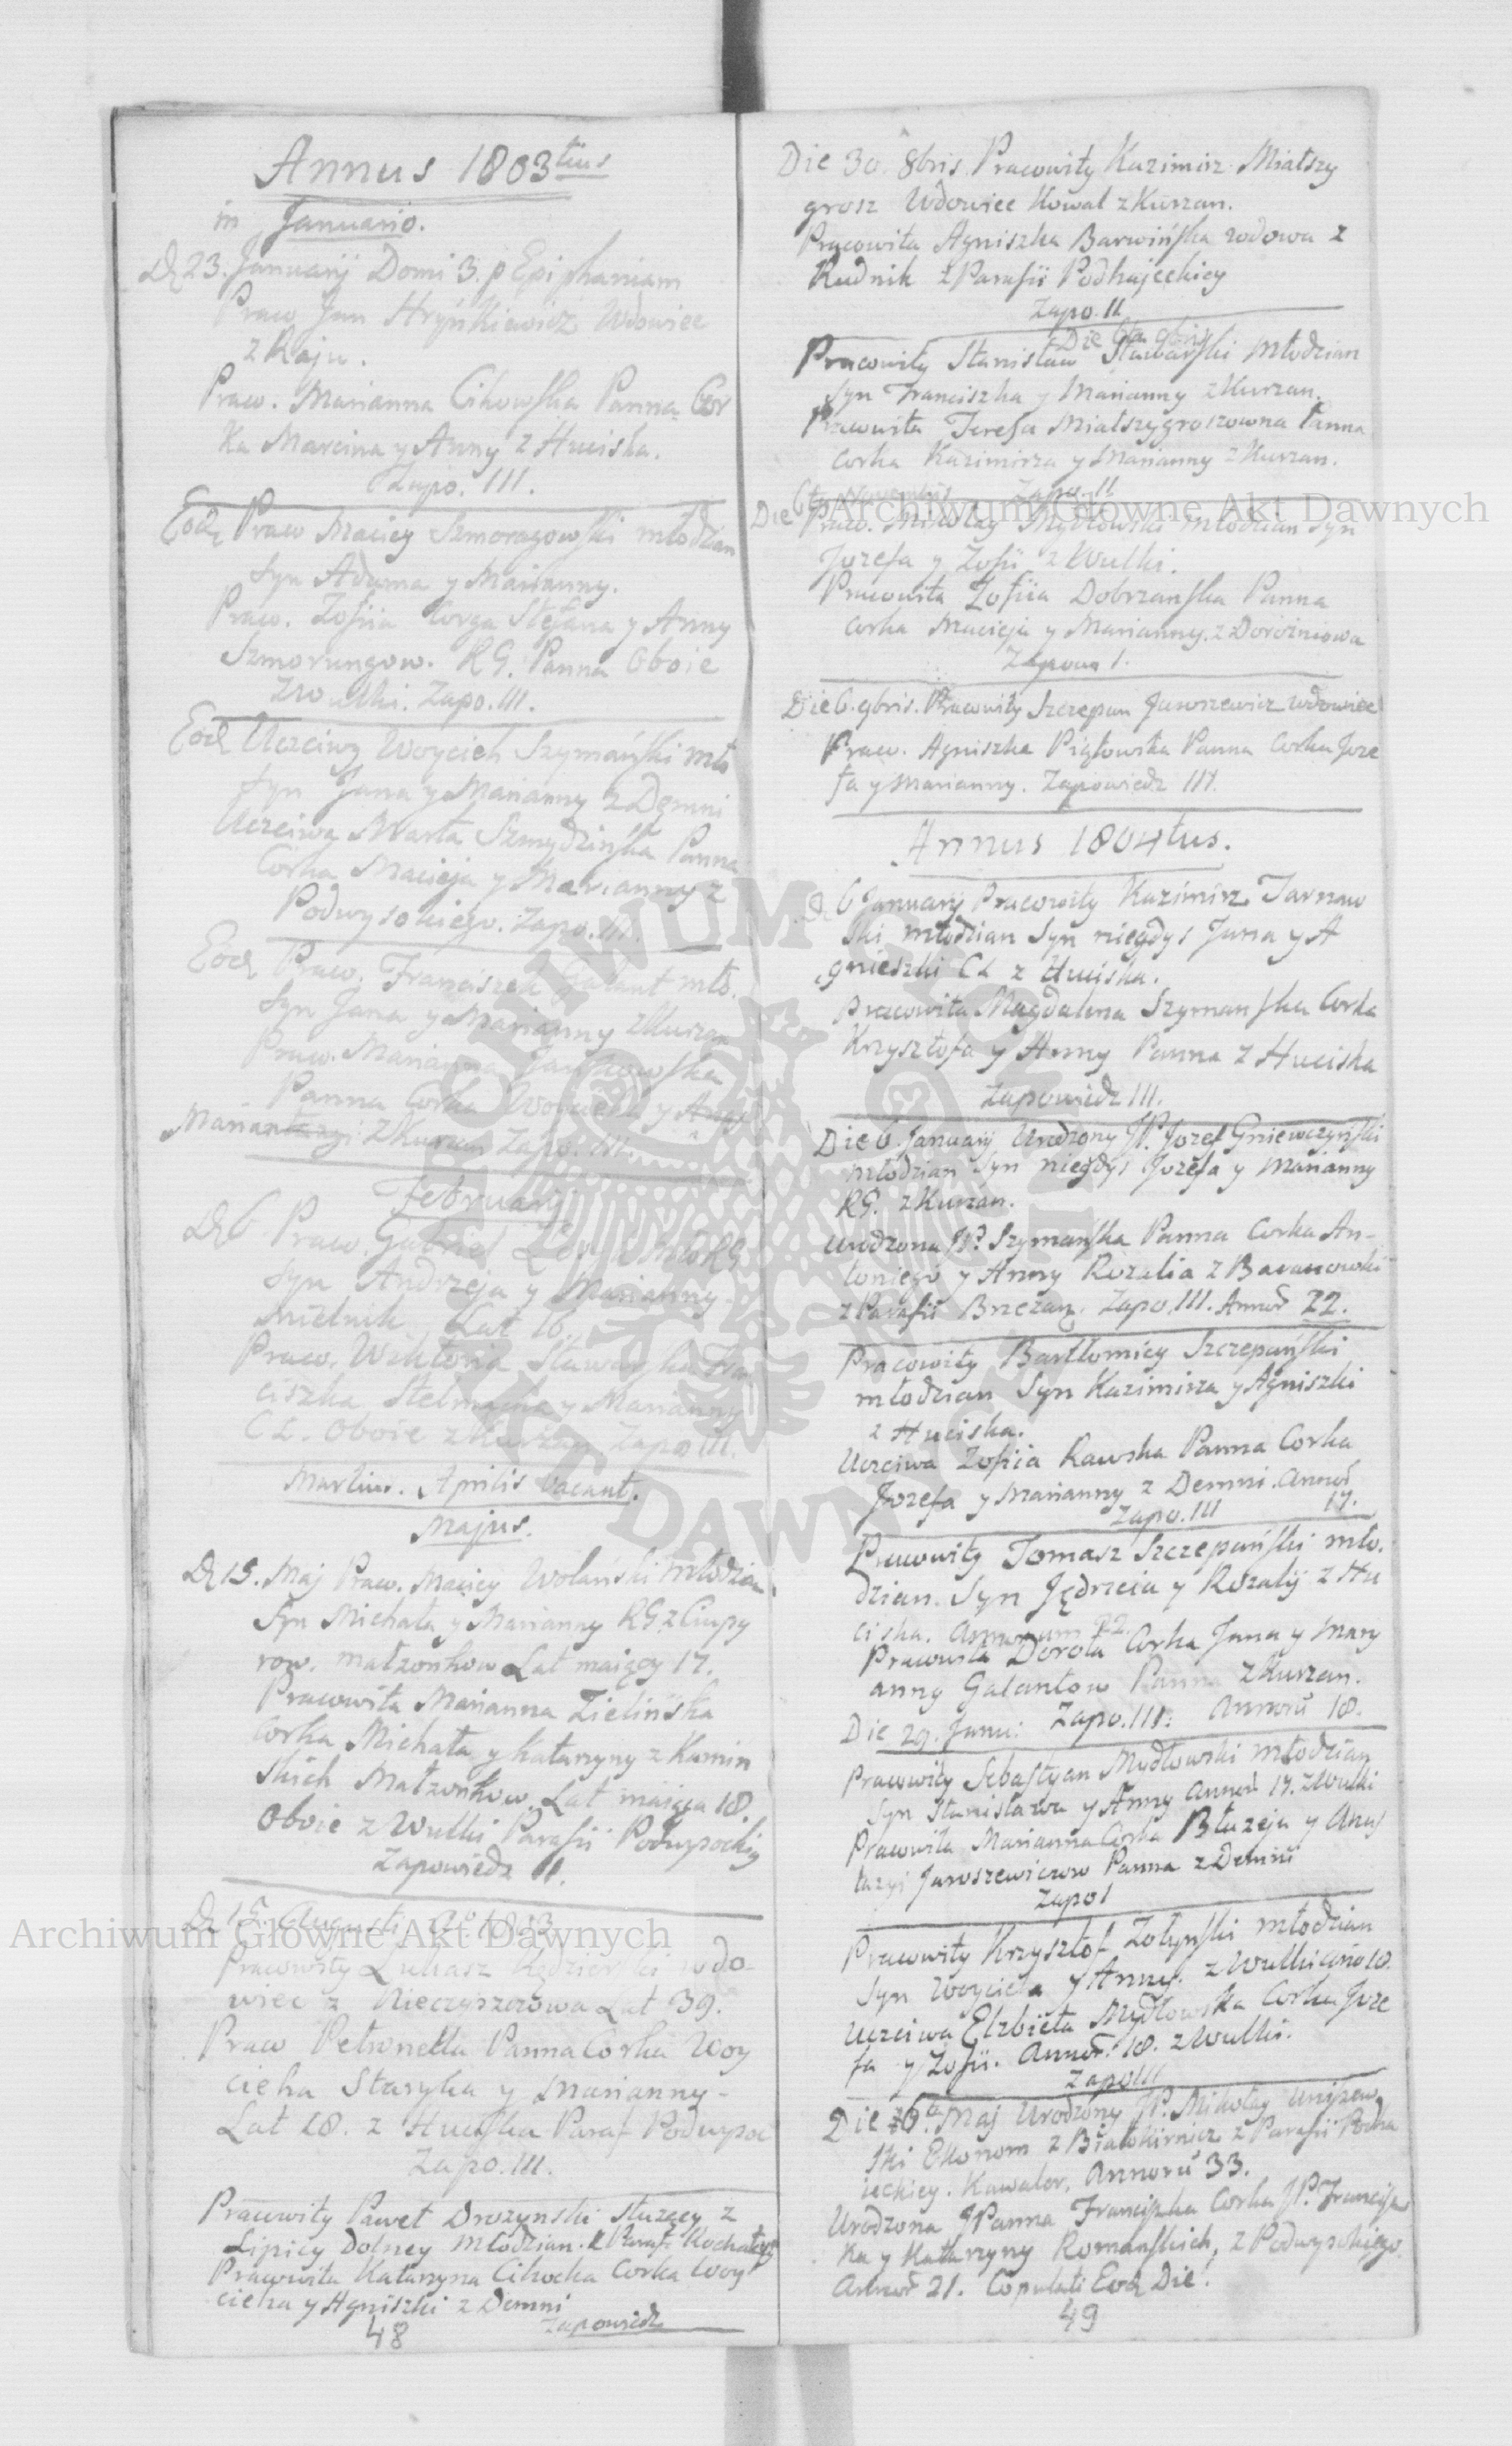 Annus 1803tius
in Januario.
D 23. Januarij Domi 3. p Epiphaniam
Praw Jan Hryńkiewicz Wdowiec
z Raju.
Praw. Marianna Cikowska Panna Cor
ka Marcina y Anny z Huciska.
Zapo. III.
Praw Maciey Szmoragowski młodzian
Syn Adama y Marianny.
Praw. Zofiia Corga Stefana y Anny
Szmorungow. RG. Panna Oboie
z Wulki. Zapo. III.
Uczciwy Woyciech Szymański mło
Syn Jana y Marianny z Demni
Uczciwa Marta Szmydzińska Panna
Corka Macieja y Marianny z
Podwysokiego. Zapo. III.
Praw. Franciszek Galant mło.
Syn Jana y Marianny z Kurzan
Praw. Marianna Jankowska
Panna Corka Woyciecha y
Marianny z Kurzan Zapo. III.
Februarij
D 6 Praw. Gabriel RG
Syn Andrzeja y Marianny
Mielnik Lat 16.
Praw. Wiktoria Stawarska Fran
ciszka Stelmacha y Marianny
CL. Oboie z Kurzan Zapo III.
Martius. Aprilis vacant.
Majus.
D 15. Maj Praw. Maciey Wolański młodzian
Syn Michała y Marianny RG z Ciupy
row. małżonkow Lat maiący 17.
Pracowita Marianna Zielińska
Corka Michała y Katarzyny z Kamin
skich Małżonkow Lat maiąca 18.
Oboie z Wulki Parafii Podwysockiy
Zapowiedz II.
D 15. Augusti Ao 1803
Pracowity Lukasz Kędzierski wdo-
wiec z Kieczyszczowa Lat 39.
Praw Petronella Panna Corka Woy
ciecha Staryka y Marianny-
Lat 18. z Huciska Paraf Podwysoc
Zapo. III.
Pracowity Paweł Drozynski służący z
Lipicy Dolney Młodzian.
Pracowita Katarzyna Cikocka Corka Woy
ciecha y Agniszki z Demni
Zapowiedz
48
Die 30. 8bris Pracowity Kazimirz Miałszy
grosz Wdowiec Kowal z Kurzan.
Pracowita Agniszka Barwińska wdowa z
Rudnik z Parafii Podhajeckiey
Zapo. II
Die 6ta 9bris
Pracowity Stanisław Stawarski Młodzian
Syn Franciszka y Marianny z Kurzan.
Pracowita Teresa Miałszygroszowna Panna
Corka Kazimirza y Marianny z Kurzan.
Zapo. II
Die 6ta Novembris
Praw. Mikołay Mydłowski Młodzian Syn
Jozefa y Zofii z Wulki.
Pracowita Zofiia Dobrzanska Panna
Corka Macieja y Marianny. z Dorozniowa
Zapow I.
Die 6. 9bris. Pracowity Szczepan Jaroszewicz wdowiec
Praw. Agniszka Piątowska Panna Corka Joze
fa y Marianny. Zapowiedz III.
Annus 1804tus.
6 Januarij Pracowity Kazimirz Tarnaw
ski młodzian Syn niegdys Jana y A
gnieszki CL z Huciska.
Pracowita Magdalena Szymanska Corka
Krzysztofa y Anny Panna z Huciska
Zapowiedz III.
Die 6. Januarij Urodzony JP. Jozef Gniewczyński
młodzian Syn niegdys Jozefa y Marianny
RG. z Kurzan.
Urodzona JP. Szymanska Panna Corka An-
toniego y Anny Rozalia z Baranowki
z Parafii Brzezan. Zapo. III. Annor 22.
Pracowity Bartłomiey Szczepański
młodzian Syn Kazimirza y Agniszki
z Huciska.
Uczciwa Zofiia Rawska Panna Corka
Jozefa y Marianny z Demni. Annor
Zapo. III 17.
Pracowity Tomasz Szczepański mło.
dzian. Syn Jędrzeia y Rozalij z Hu
ciska. Annorum 22.
Pracowita Dorota Corka Jana y Mary
anny Galantow Panna z Kurzan.
Die 29. Janu: Zapo. III: Annorū 18.
Pracowity Sebastyan Mydłowski młodzian
Syn Stanisława y Anny Annor 17. z Wulki
Pracowita Marianna Corka Błażeja y Anas
tazyi Jaroszewiczow Panna z Demni
Zapo I
Pracowity Krzysztof Zołynski młodzian
Syn Woyciecha y Anny. z Wulki anno 18.
Uczciwa Elzbieta Mydłowska Corka Joze
fa y Zofii. Annor. 18. z Wulki.
Zapo III
Die 6ta Maj Urodzony JP. Mikołay Uniszew
ski Ekonom z Białokiernicz z Parafii Podha
ieckiey. Kawaler. Annorū 33.
Urodzona JPanna Franciszka Corka JP. Francisz
ka y Katarzyny Romanskich, z Podwysokiego.
Annor 21. Copulati Eod Die.
49
Archiwum Główne Akt Dawnych
Archiwum Główne Akt Dawnych
ARCHIWUM GŁÓWNE AKT DAWNYCH